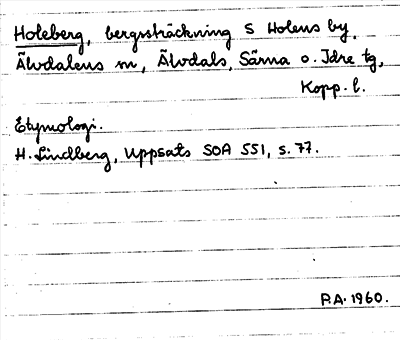 Holeberg, bergssträckning S Holens by,
Älvdalens sn, Älvdals, Särna o. Idre tg,
Kopp. l.
Etymologi.
H. Lindberg, Uppsats SOA 551, s. 77.
P.A. 1960.